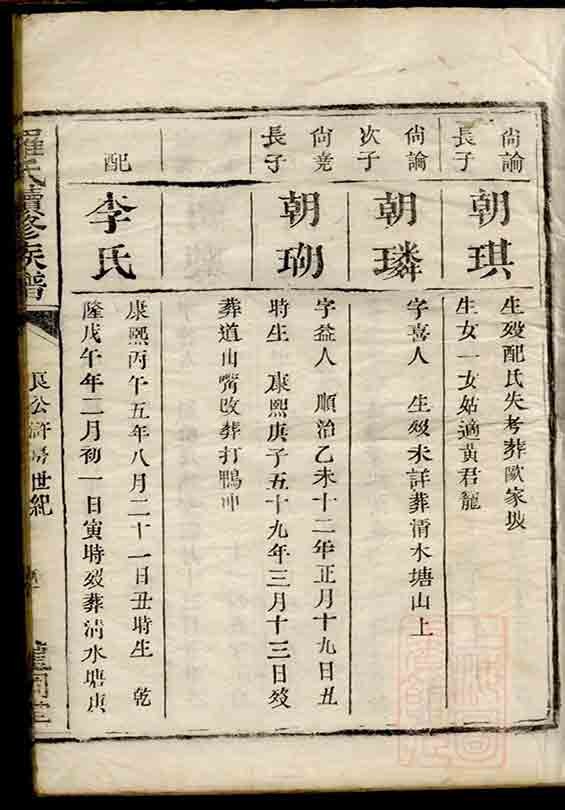 尙論
長子
朝琪
生歿配氏失考葬歐家坡
生女一女姑適黃君龍
尙論
次子
朝璘
字喜人 生歿未詳葬清木塘山上
尙堯
長子
朝瑚
字益人 順治乙未十二年正月十九日丑
時生 康熙庚子五十九年三月十三日歿
葬道山嘴改葬打鴨冲
配
李氏
康熙丙午五年八月二十一日丑時生 乾
隆戊午年二月初一日寅時歿葬清水塘庚
羅氏續修族譜
公滸房世紀